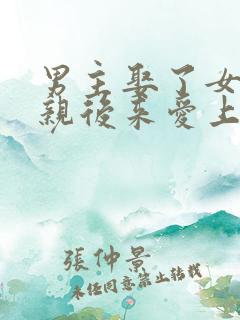 男主娶了女
親後来愛上
張仲景
未经同意禁止转载